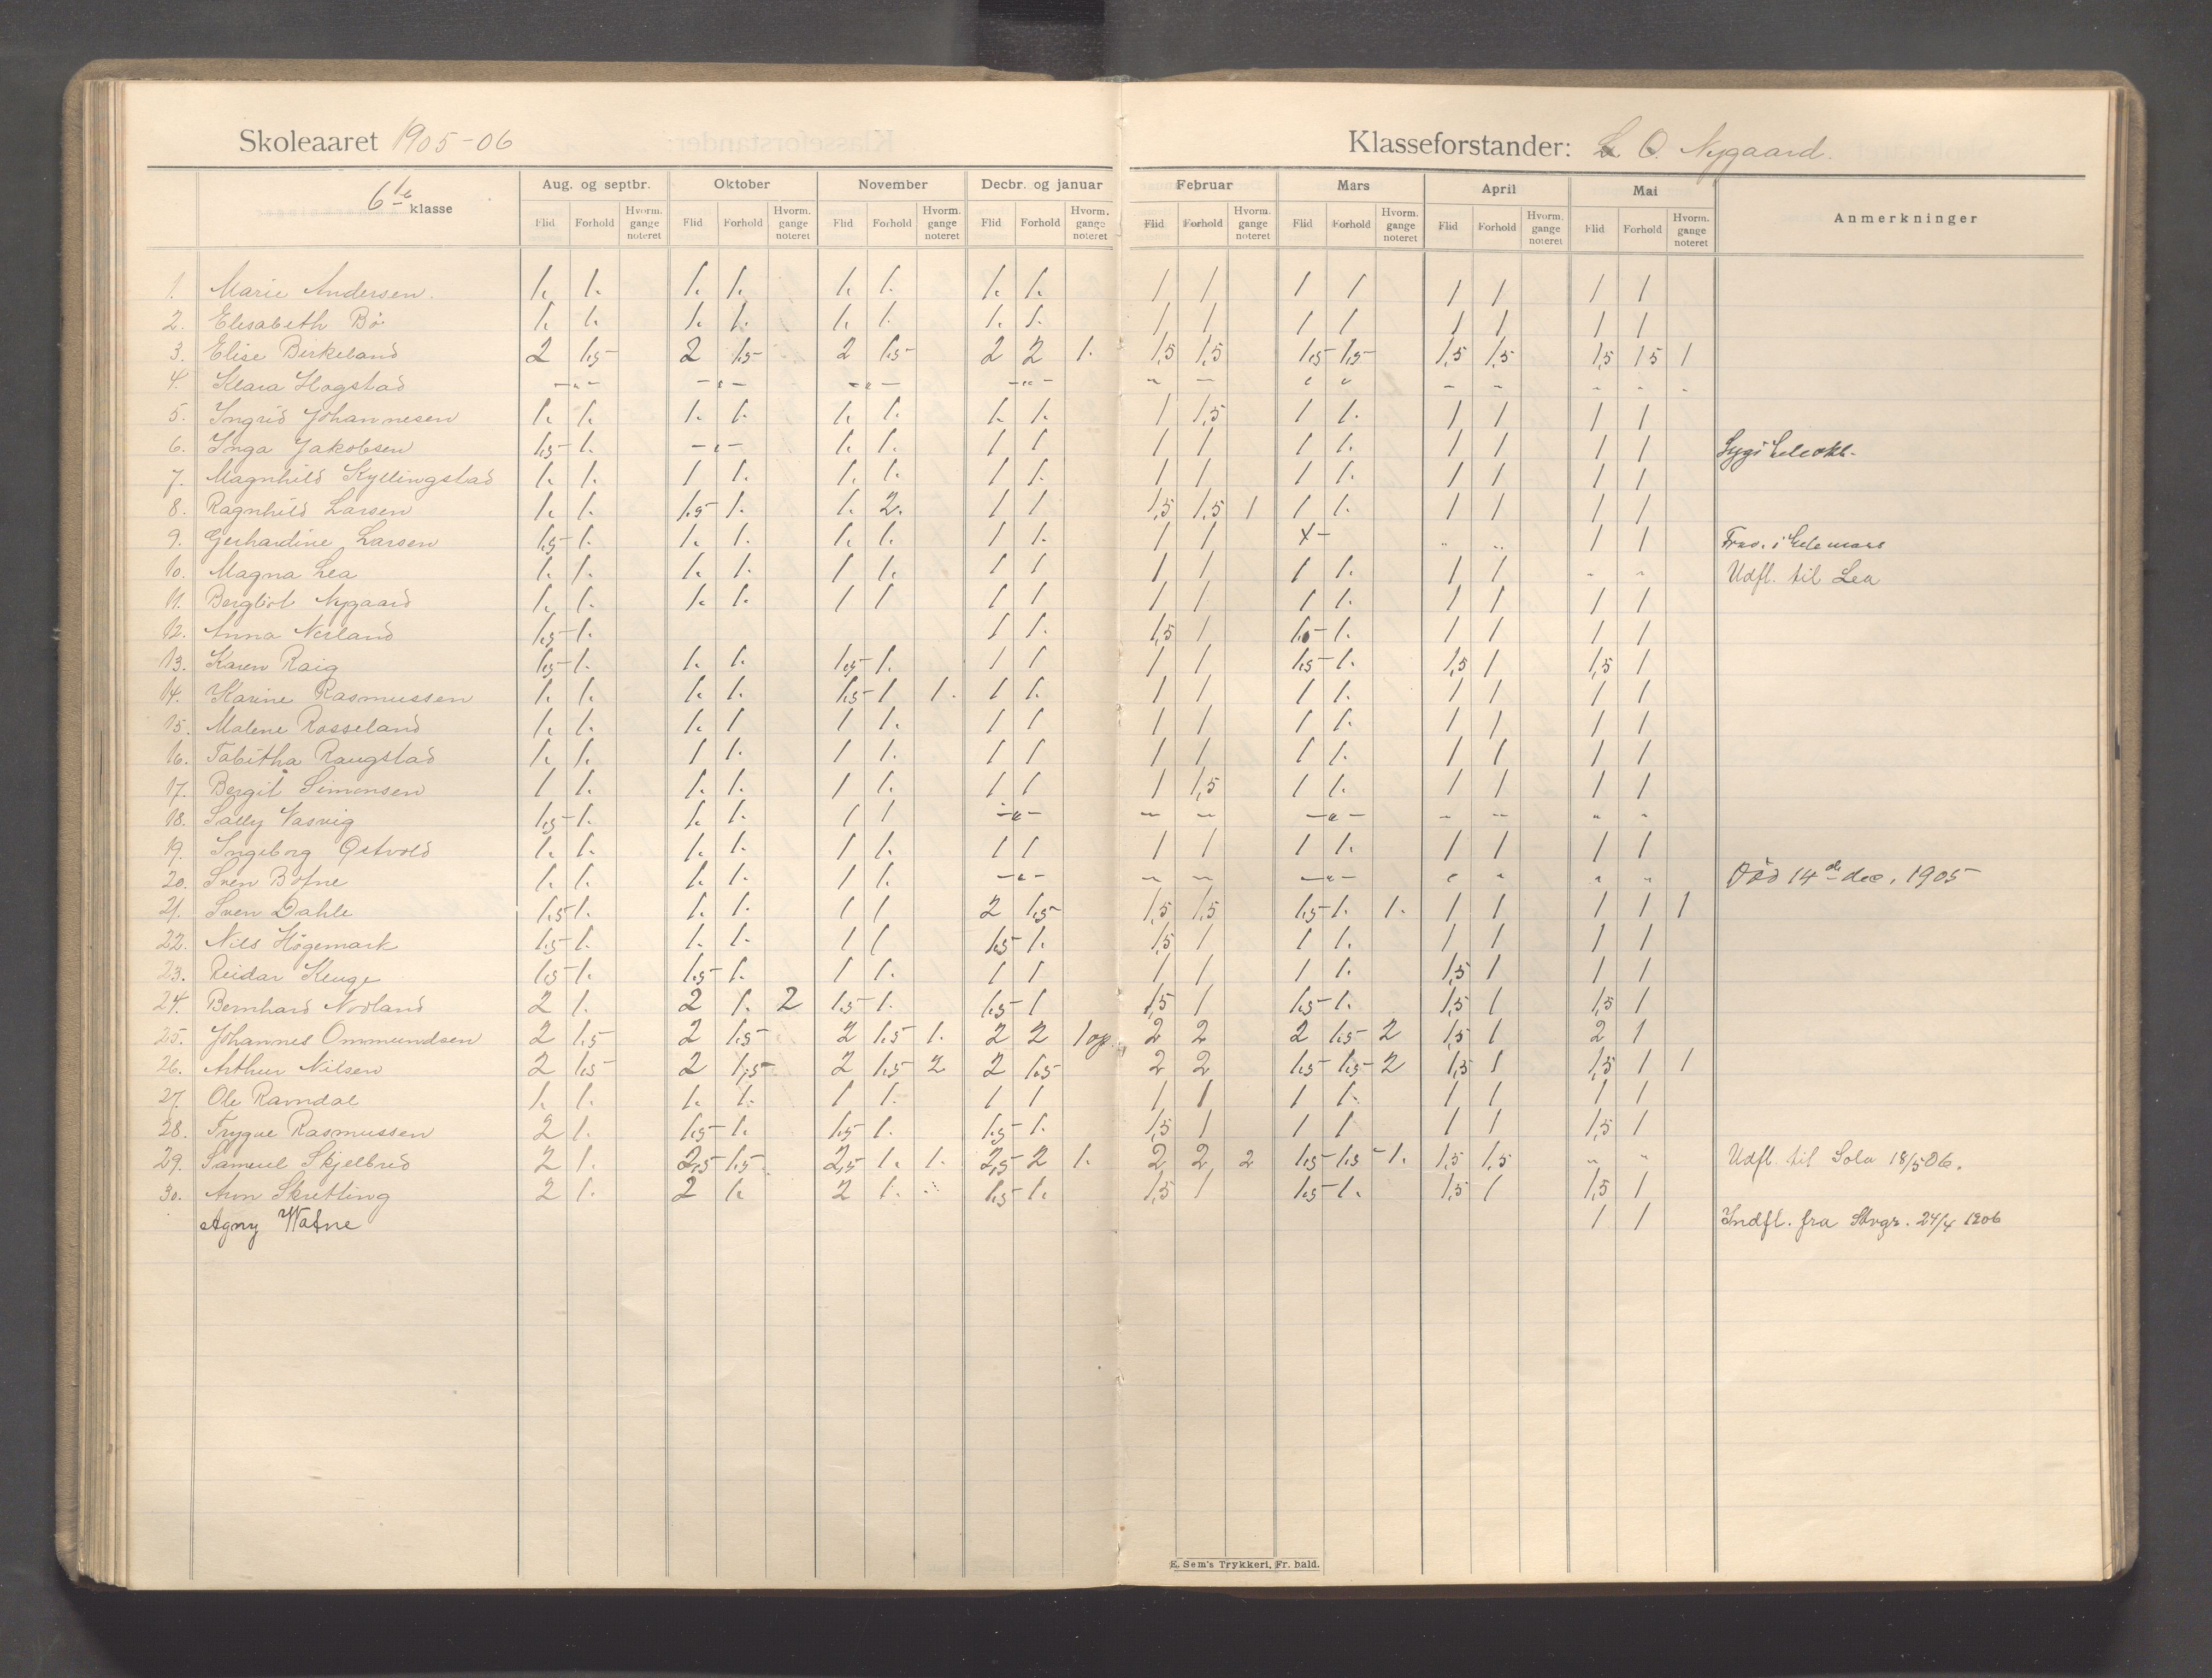 Skoleaaret 1905-06
Klasseforstander: O. Nygaard.
6te klasse
Aug. og septbr. Oktober November Decbr. og januar Februar Mars April Mai
Flid Forhold Hvorm. gange noteret Flid Forhold Hvorm. gange noteret Flid Forhold Hvorm. gange noteret Flid Forhold Hvorm. gange noteret Flid Forhold Hvorm. gange noteret Flid Forhold Hvorm. gange noteret Flid Forhold Hvorm. gange noteret Flid Forhold Hvorm. gange noteret Anmerkninger
1. Marie Andersen. 1. 1. 1. 1. 1. 1. 1. 1. 1 1 1 1 1 1 1 1
2. Elisabeth Bø 1. 1. 1. 1. 1. 1. 1. 1. 1 1 1 1 1 1 1 1
3. Elise Birkeland 2 1.5 2 1.5 2 1.5 2 2 1. 1,5 1,5 1.5 1.5 1,5 1,5 1,5 15 1
4. Klara Hogstad -"- -"- -"- -"- " " " " " " " " "
5. Ingrid Johannesen 1. 1. 1. 1. 1. 1. 1. 1. 1 1,5 1 1. 1 1 1 1
6. Inga Jakobsen 1.5 1. -"- 1. 1. 1 1 1 1 1 1. 1 1 1 1 Syg i hele okt.
7. Magnhild Kyllingstad 1. 1. 1 1. 1. 1. 1 1. 1 1 1 1. 1 1 1 1
8. Ragnhild Larsen 1. 1. 1.5 1. 1. 2. 1 1 1,5 1,5 1 1 1. 1 1 1 1
9. Gerhardine Larsen 1.5 1. 1. 1. 1. 1. 1 1. 1 1 " " 1 1 Frav. i hele mars
10. Magna Lea 1. 1. 1. 1. 1 1. 1 1 1 1 1 1. 1 1 " " Udfl. til Lea
11. Bergliot Nygaard 1. 1. 1. 1. 1 1 1 1 1 1 1 1. 1 1 1 1
12. Anna Nerland 1.5 1. 1 1. 1,5 1 1. 1 1 1 1
13. Karen Raig 1.5 1. 1. 1. 1.5 1. 1 1 1 1 1.5 1. 1,5 1 1,5 1
14. Karine Rasmussen 1. 1. 1. 1. 1.5 1 1. 1 1. 1 1 1 1. 1 1 1 1
15. Malene Rosseland 1. 1. 1. 1 1 1. 1 1 1 1 1 1. 1 1 1 1
16. Tabitha Raugstad 1. 1. 1 1. 1 1. 1 1 1 1 1 1. 1 1 1 1
17. Bergit Simonsen 1 1. 1. 1. 1 1. 1 1 1 1,5 1 1. 1 1 1 1
18. Sally Vasvig 1.5 1. 1. 1. 1 1 -"- " " -"- " " " "
19. Ingeborg Østvold 1. 1. 1. 1. 1 1. 1 1 1 1 1 1. 1 1 1 1
20. Sven Bofne 1. 1. 1. 1. 1 1. -"- " " -"- " " " " Død 14de dec. 1905
21. Sven Dahle 1.5 1. 1. 1. 1 1 2 1.5 1,5 1,5 1.5 1. 1. 1 1 1 1 1
22. Nils Høgemark 1.5 1. 1. 1. 1 1 1.5 1. 1,5 1 1 1. 1 1 1 1
23. Reidar Kluge 1.5 1. 1.5 1. 1 1. 1 1 1 1 1 1. 1,5 1 1 1
24. Bernhard Nodland 2 1. 2 1. 2 1.5 1. 1.5 1 1,5 1 1.5 1. 1,5 1 1,5 1
25. Johannes Ommundsen 2 1.5 2 1.5 2 1.5 1. 2 2 1 2 2 2 1.5 2 1,5 1 2 1
26. Arthur Nilsen 2 1.5 2 1.5 2 1.5 2 2 1.5 2 2 1.5 1.5 2 1,5 1 1,5 1 1
27. Ole Ravndal 1. 1. 1. 1. 1 1. 1 1 1 1 1 1. 1 1 1 1
28. Trygve Rasmussen 2 1. 1.5 1. 1.5 1. 1.5 1. 1,5 1 1 1 1 1 1,5 1
29. Samuel Skjelbred 2 1. 2,5 1.5 2,5 1. 1. 2,5 2 1. 2 2 2 1.5 1.5 1. 1,5 1,5 " " Udfl. til Sola 18/5 06.
30. Arm Skretting 2 1. 2 1. 2 1. 1.5 1. 1,5 1 1.5 1. 1,5 1 1,5 1
Agny Watne 1 1 Indfl. fra Stvgr. 24/4 1906
E. Sem's Trykkeri, Fr. hald.